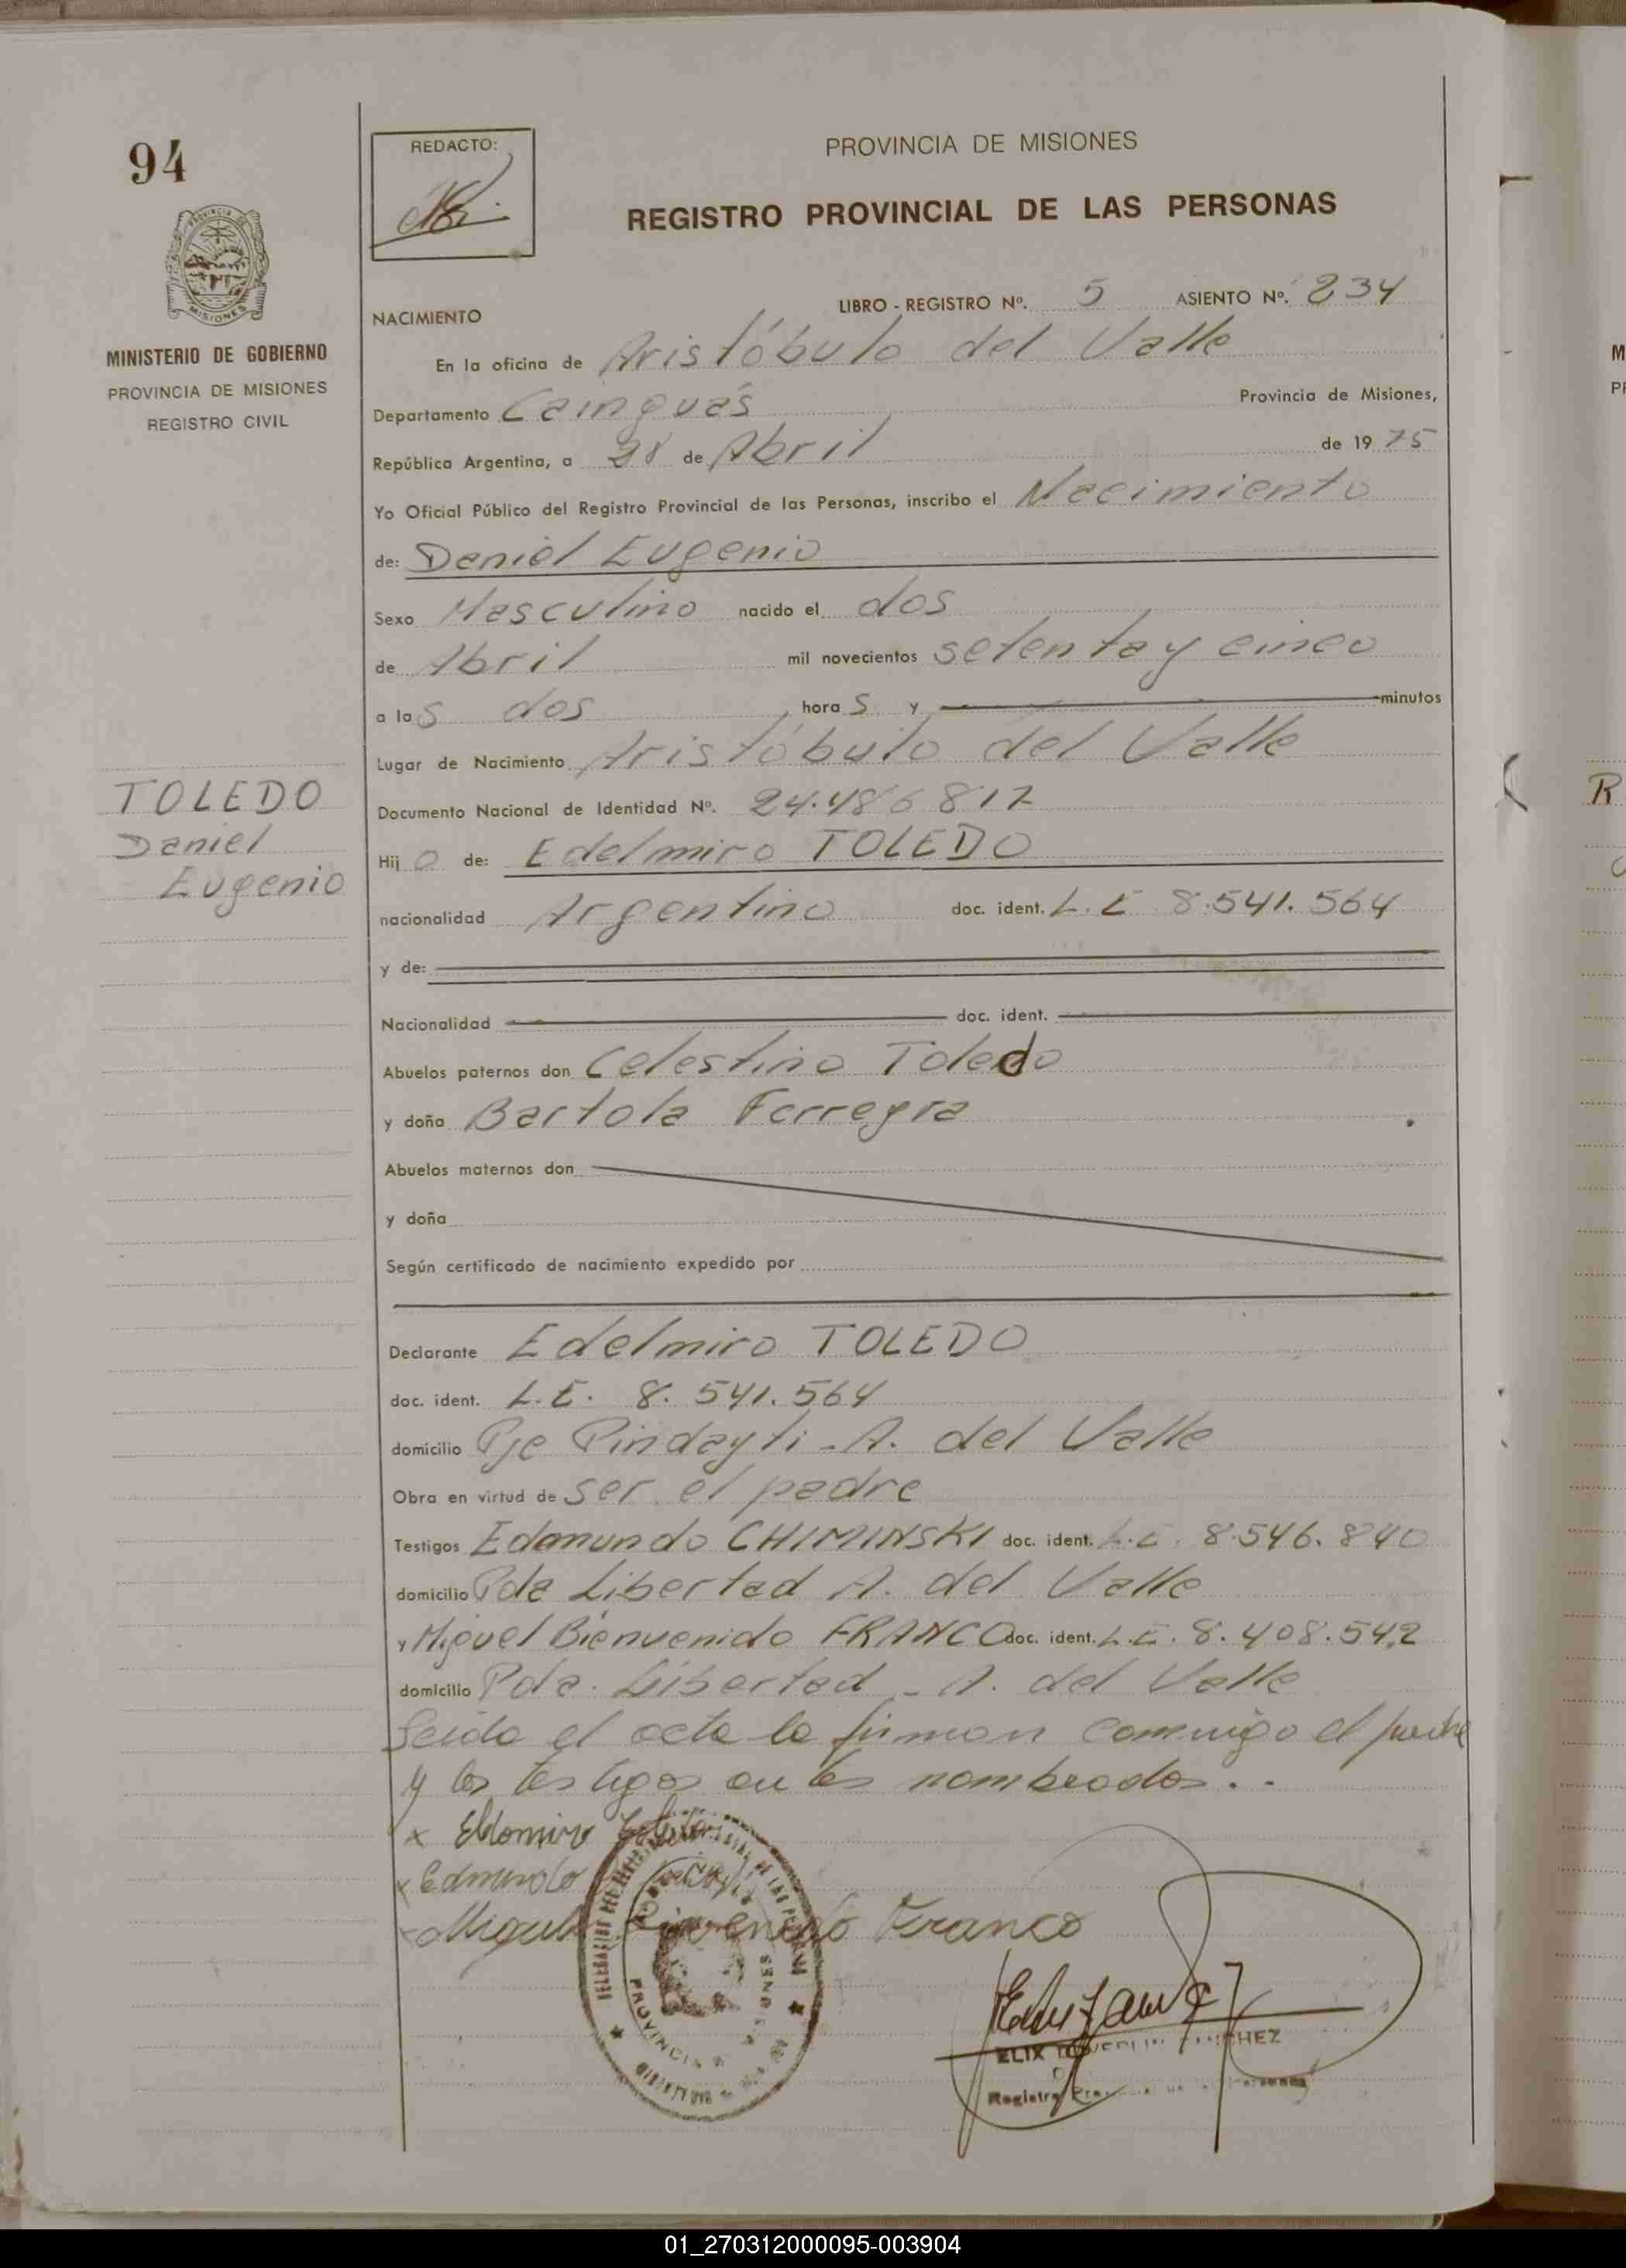 94
REDACTO:
PROVINCIA DE MISIONES
REGISTRO PROVINCIAL DE LAS PERSONAS
MISIONES
MINISTERIO DE GOBIERNO
PROVINCIA DE MISIONES
REGISTRO CIVIL
NACIMIENTO
LIBRO - REGISTRO Nº. 5 ASIENTO Nº. 234
En la oficina de Aristóbulo del Valle
Departamento Cainguás Provincia de Misiones,
República Argentina, a 28 de Abril de 1975
Yo Oficial Público del Registro Provincial de las Personas, inscribo el Nacimiento
de: Daniel Eugenio
Sexo Masculino nacido el dos
de Abril mil novecientos setenta y cinco
a las dos horas y minutos
Lugar de Nacimiento Aristóbulo del Valle
TOLEDO
Daniel
Eugenio
Documento Nacional de Identidad Nº. 24.486817
Hijo de: Edelmiro TOLEDO
nacionalidad Argentino doc. ident. L.E 8.541.564
y de:
Nacionalidad doc. ident.
Abuelos paternos don Celestino Toledo
y doña Bartola Ferreyra
Abuelos maternos don
y doña
Según certificado de nacimiento expedido por
Declarante Edelmiro TOLEDO
doc. ident. L.E. 8.541.564
domicilio Pje Pindayti - A. del Valle
Obra en virtud de ser el padre
Testigos Edmundo CHIMINSKI doc. ident. L.E. 8.546.840
domicilio Pda Libertad A. del Valle
y Miguel Bienvenido FRANCO doc. ident. L.E. 8.408.542
domicilio Pda. Libertad - A. del Valle
Leida el acta la firman conmigo el padre
y los testigos antes nombrados..
x Eldomiro Toledo
x Edmundo
x Miguel Bienvenido Franco
PROVINCIA
Registro
01_270312000095-003904